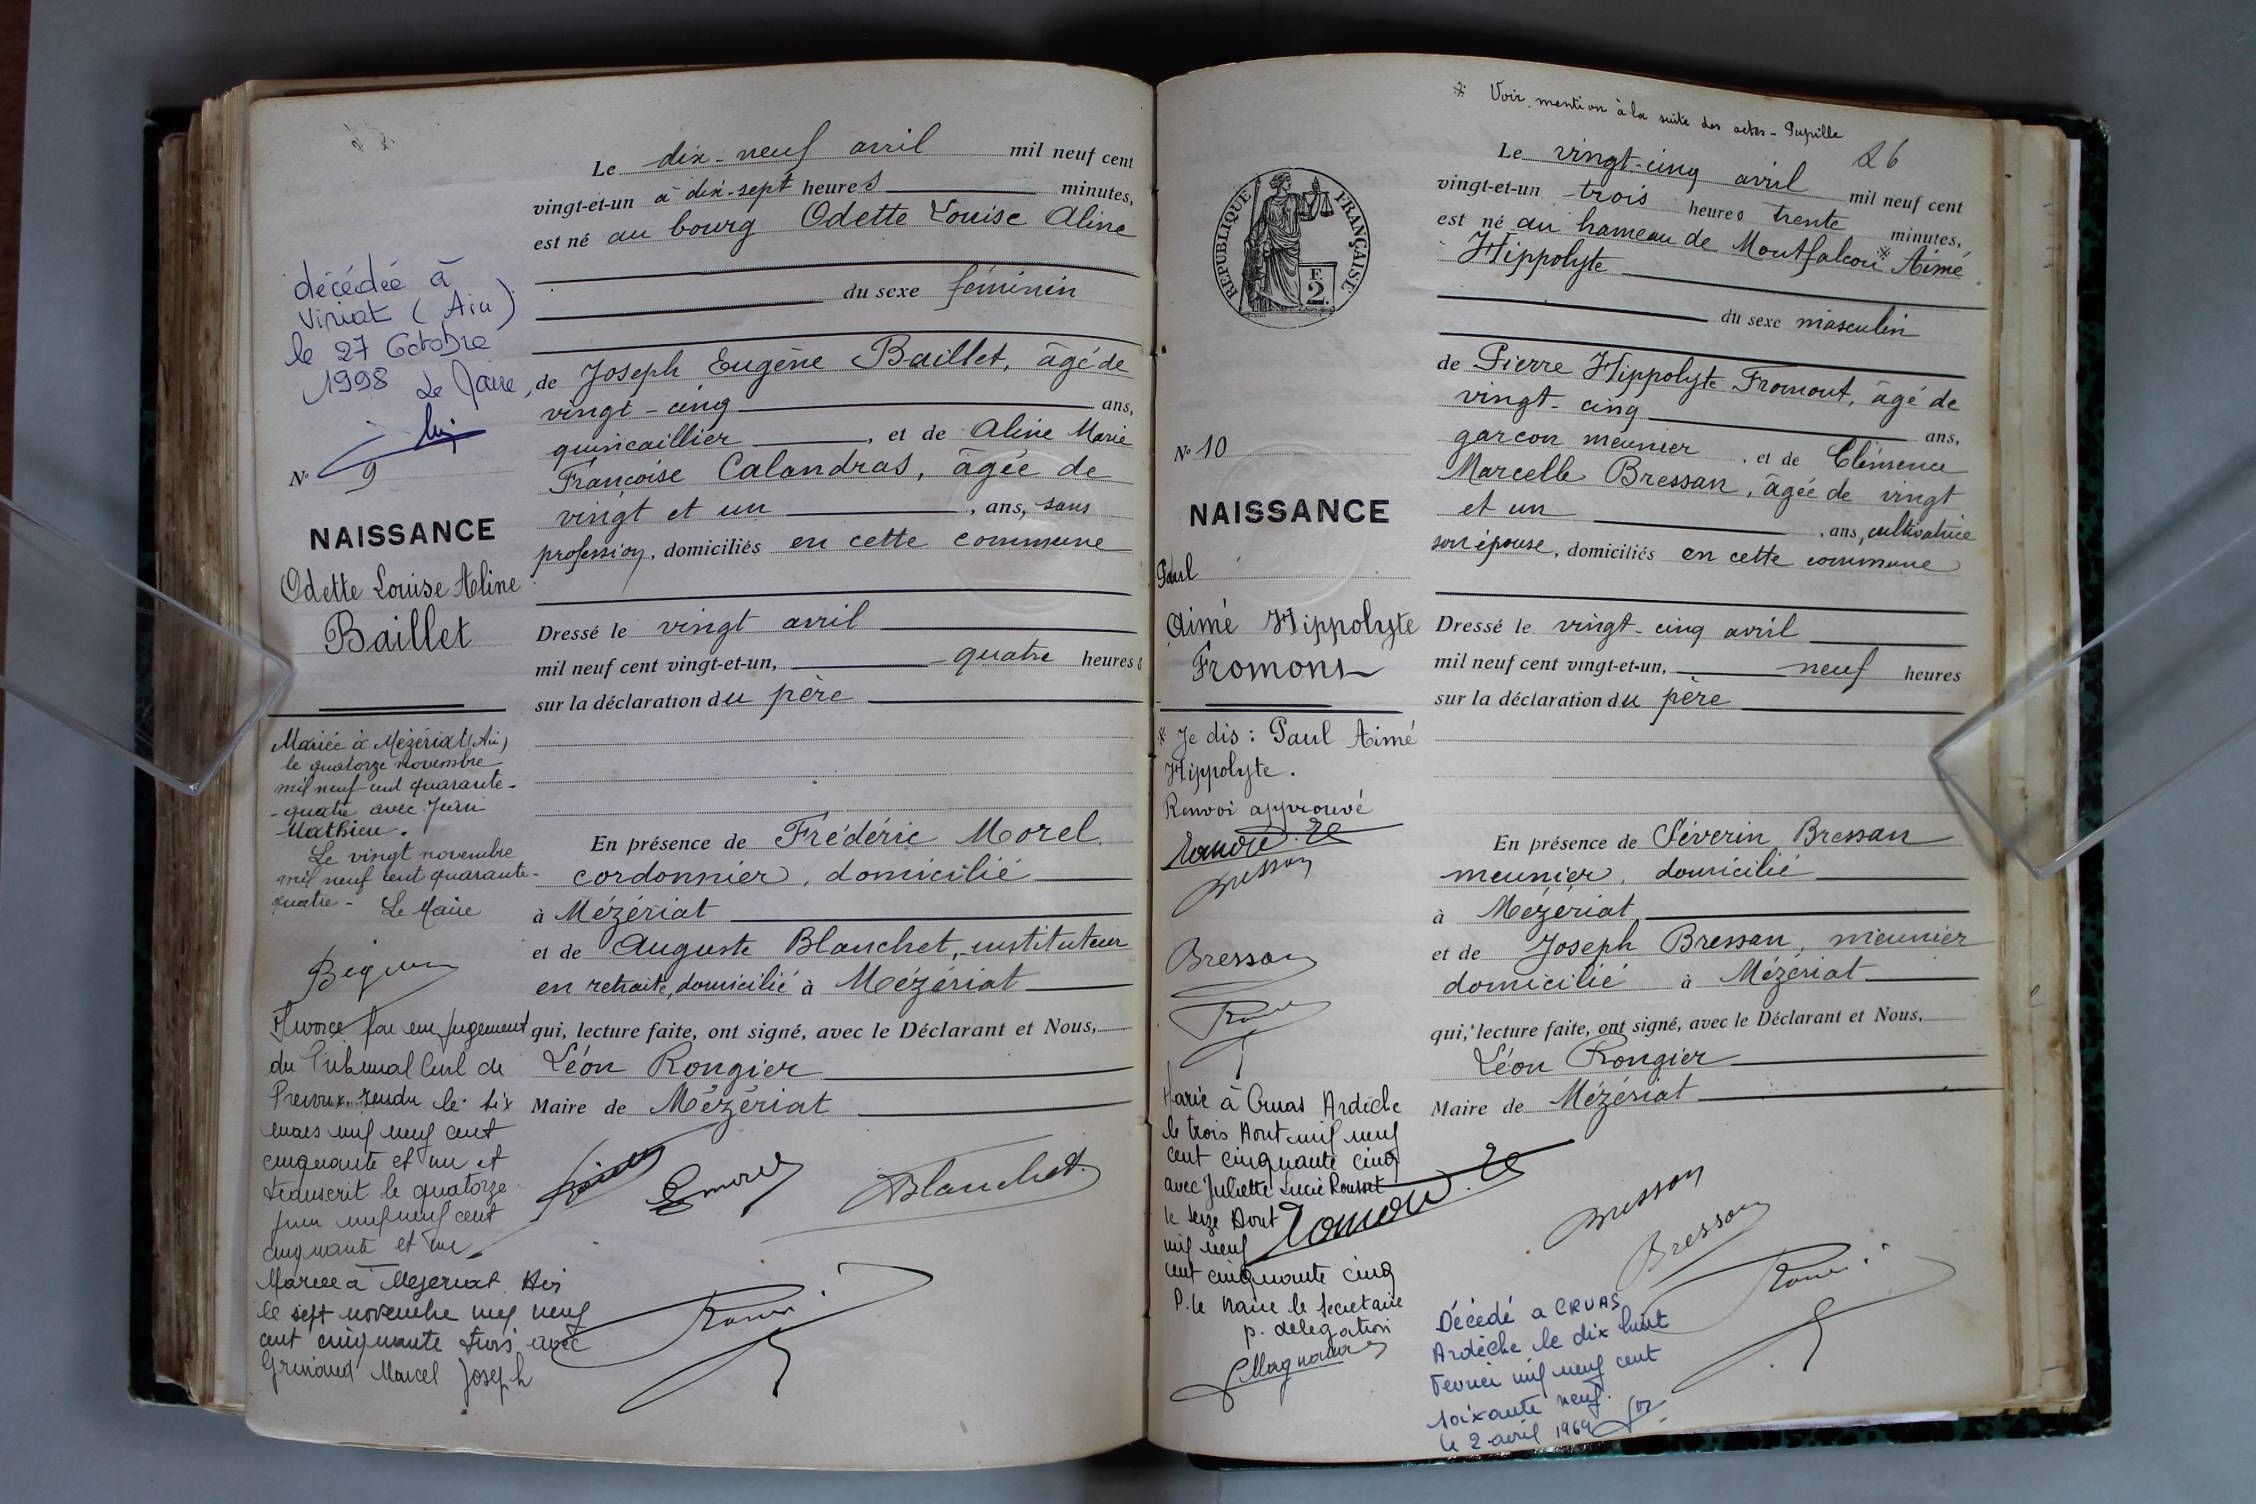 Le dix-neuf avril mil neuf cent
vingt-et-un à dix-sept heures minutes,
est né au bourg Odette Louise Aline
du sexe féminin
de Joseph Eugène Baillet, âgé de
vingt-cinq ans,
quincaillier, et de Aline Marie
Françoise Calandras, âgée de
vingt et un, ans, sans
profession, domiciliés en cette commune
Dressé le vingt avril
mil neuf cent vingt-et-un, quatre heures
sur la déclaration du père
En présence de Frédéric Morel,
cordonnier, domicilié
à Mézériat
et de Auguste Blanchet, instituteur
en retraite, domicilié à Mézériat
qui, lecture faite, ont signé, avec le Déclarant et Nous,
Léon Rongier
Maire de Mézériat
Blanchet
décédée à
Viriat (Ain)
le 27 Octobre
1998 Le Maire,
N° 9
NAISSANCE
Odette Louise Aline
Baillet
Mariée à Mézériat (Ain)
le quatorze novembre
mil neuf cent quarante-
-quatre avec Jean
Mathieu.
Le vingt novembre
mil neuf cent quarante-
quatre - Le Maire
Divorce par un jugement
du Tribunal Civil de
Trevoux rendu le six
mars mil neuf cent
cinquante et un et
transcrit le quatorze
juin mil neuf cent
cinquante et un
Mariée à Mezeriat Ain
le sept novembre mil neuf
cent cinquante trois avec
Marcel Joseph
※ Voir mention à la suite des actes - Pupille
26
Le vingt-cinq avril mil neuf cent
vingt-et-un trois heures trente minutes,
est né au hameau de Montfalcon ※ Aimé
Hippolyte
du sexe masculin
de Pierre Hippolyte Fromont, âgé de
vingt-cinq ans,
garcon meunier, et de Clémence
Marcelle Bressan, âgée de vingt
et un, ans, cultivatrice
son épouse, domiciliés en cette commune
Dressé le vingt-cinq avril
mil neuf cent vingt-et-un, neuf heures
sur la déclaration du père
En présence de Séverin Bressan
meunier, domicilié
à Mézériat
et de Joseph Bressan, meunier
domicilié à Mézériat
qui, lecture faite, ont signé, avec le Déclarant et Nous,
Léon Rongier
Maire de Mézériat
Bresson
Bresson
Décédé a CRUAS
Ardèche le dix huit
Fevrier mil neuf cent
soixante neuf.
le 2 avril 1969
RÉPUBLIQUE FRANÇAISE
F.
2.
N° 10
NAISSANCE
Paul
Aimé Hippolyte
Fromont
※ Je dis : Paul Aimé
Hippolyte.
Renvoi approuvé
Bresson
Bresson
Marié à Cruas Ardèche
le trois Aout mil neuf
cent cinquante cinq
avec Juliette Lucie
le seize Aout
mil neuf
cent cinquante cinq
P. le Maire le secretaire
p. delegation